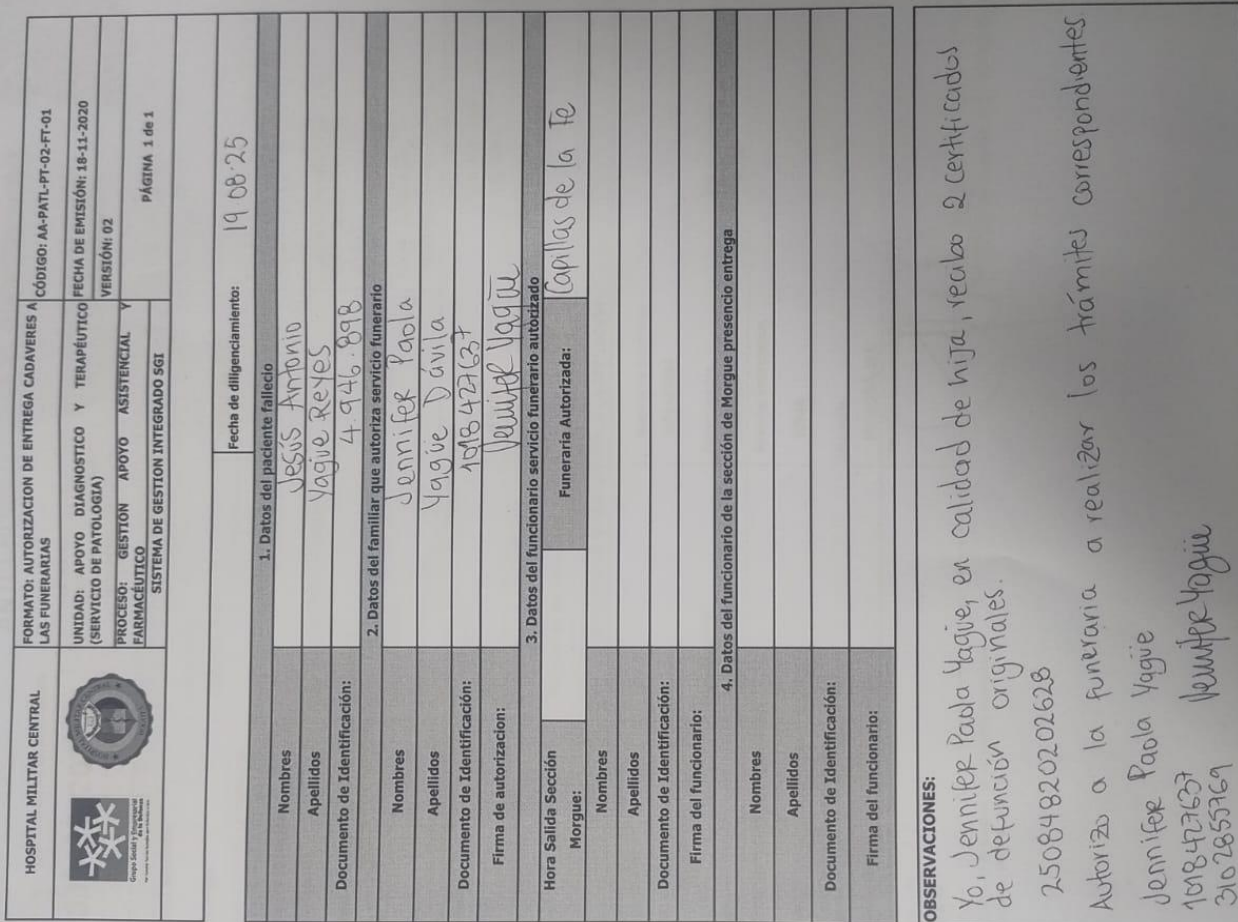 HOSPITAL MILITAR CENTRAL
FORMATO: AUTORIZACION DE ENTREGA CADAVERES A
LAS FUNERARIAS
CÓDIGO: AA-PATL-PT-02-FT-01
Grupo Social y Empresarial
de la Defensa
UNIDAD: APOYO DIAGNOSTICO Y TERAPÉUTICO
(SERVICIO DE PATOLOGIA)
FECHA DE EMISIÓN: 18-11-2020
VERSIÓN: 02
PROCESO: GESTIÓN APOYO ASISTENCIAL Y
FARMACÉUTICO
SISTEMA DE GESTION INTEGRADO SGI
PÁGINA 1 de 1
Fecha de diligenciamiento: 19 08·25
1. Datos del paciente fallecio
Nombres Jesus Antonio
Apellidos Yagüe Reyes
Documento de Identificación: 4.946.898
2. Datos del familiar que autoriza servicio funerario
Nombres Jennifer Paola
Apellidos Yagüe Dávila
Documento de Identificación: 1018427637
Firma de autorizacion: Jennifer Yagüe
3. Datos del funcionario servicio funerario autorizado
Hora Salida Sección
Morgue:
Funeraria Autorizada: Capillas de la Fe
Nombres
Apellidos
Documento de Identificación:
Firma del funcionario:
4. Datos del funcionario de la sección de Morgue presencio entrega
Nombres
Apellidos
Documento de Identificación:
Firma del funcionario:
OBSERVACIONES:
Yo, Jennifer Paola Yagüe, en calidad de hija, recibo 2 certificados
de defunción originales.
25084820202628
Autorizo a la funeraria a realizar los trámites correspondientes.
Jennifer Paola Yagüe
1018427637 Jennifer Yagüe
3102855769